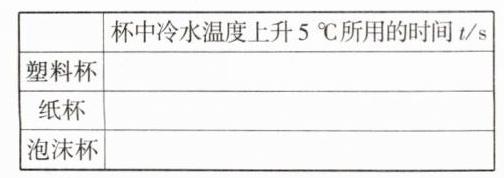 杯中冷水温度上升5 ℃所用的时间 t/s
塑料杯
纸杯
泡沫杯